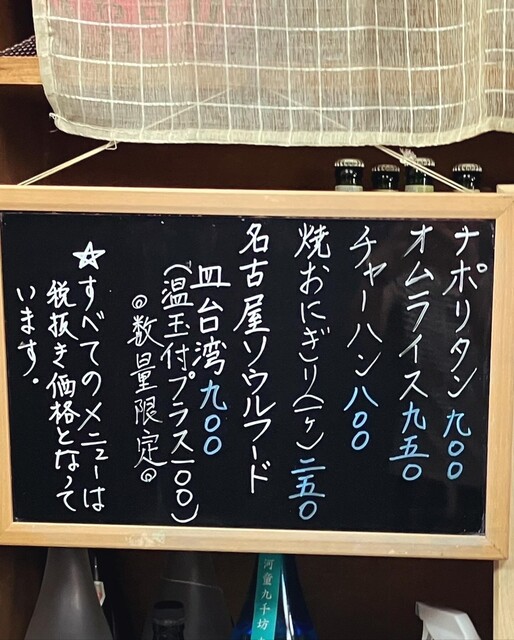 ナポリタン 九〇〇
オムライス 九五〇
チャーハン 八〇〇
焼おにぎり(一ヶ) 二五〇
名古屋ソウルフード
皿台湾 九〇〇
(温玉付プラス一〇〇)
◎数量限定◎
☆すべてのメニューは
税抜き価格となって
います。
河童九千坊